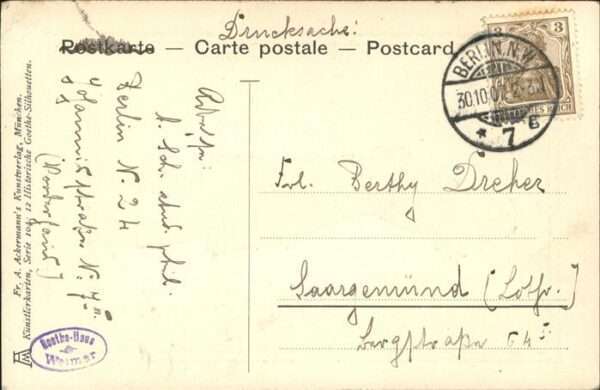 Drucksache!
Postkarte — Carte postale — Postcard
3
BERLIN, N.W.
30.10.07
* 7 g
Frl. Berthy Dreher
Saargemünd (Lothr.)
Bergstraße 64 I
A. Sch. stud. phil.
Berlin N. 24
Johannisstraße N. 7 II.
(Vorderhaus)
Fr. A. Ackermann's Kunstverlag, München.
Künstlerkarten, Serie 104, 12 Historische Goethe-Silhouetten.
Goethe-Haus
Weimar